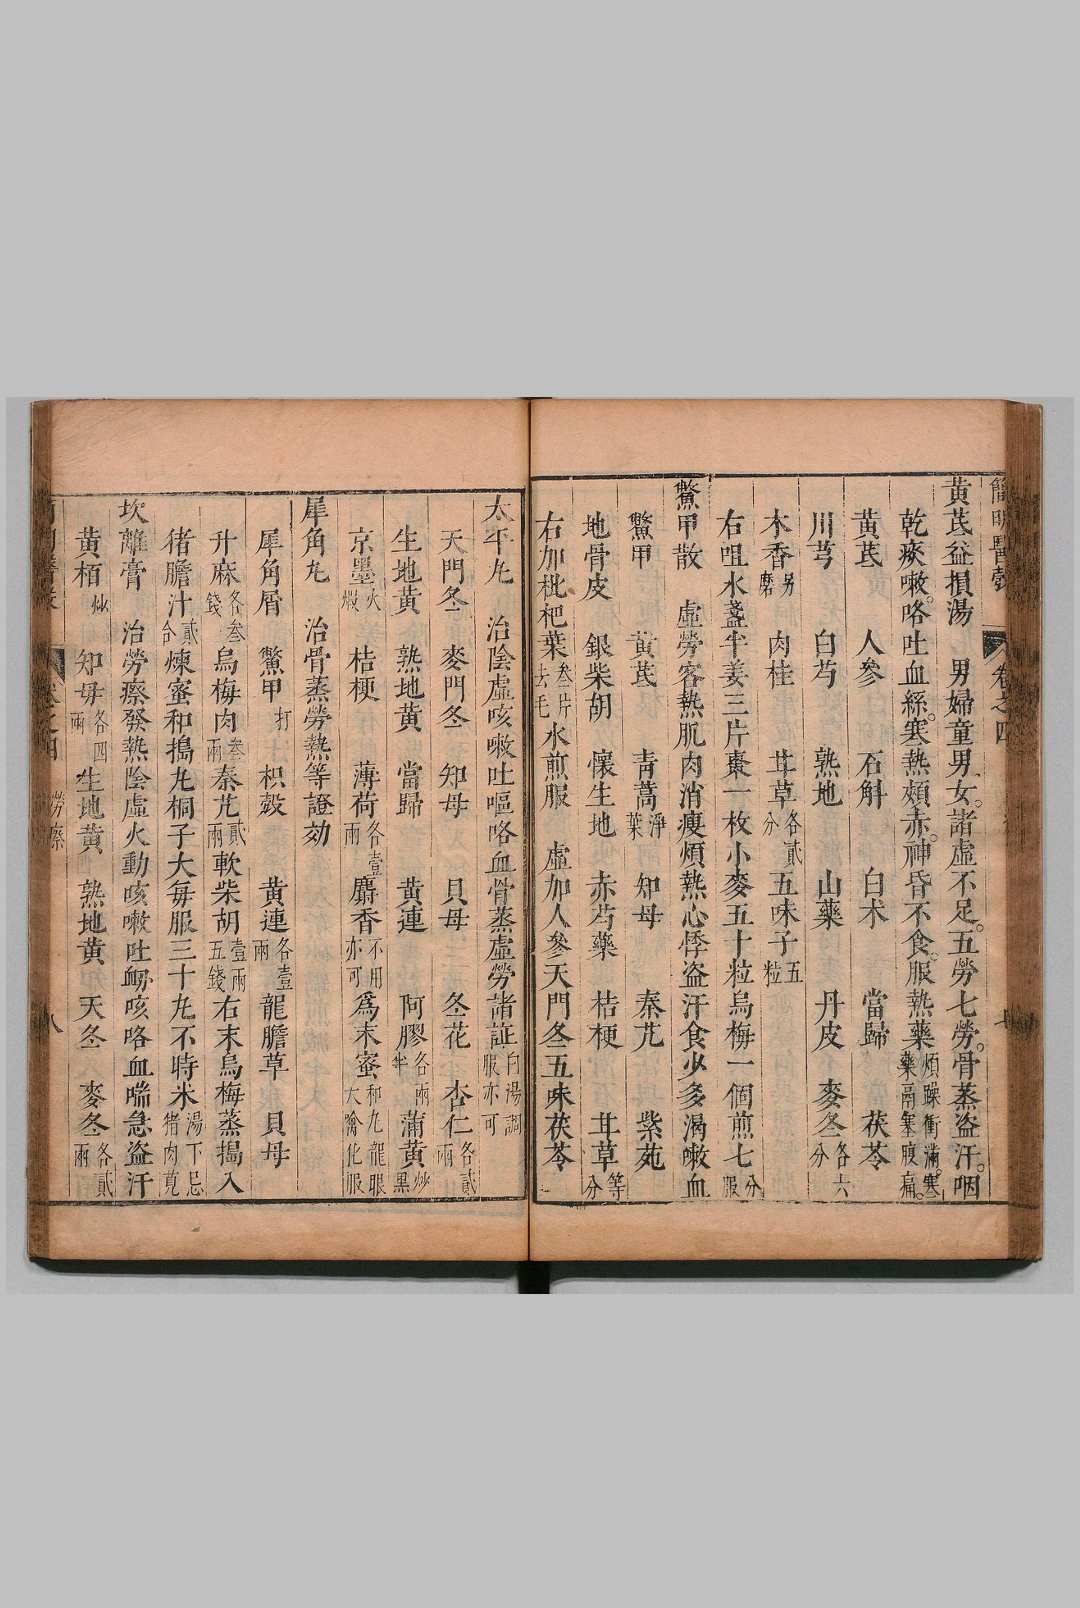 簡明醫彀 卷之四 七
黃芪益損湯　男婦童男女。諸虛不足。五勞七勞。骨蒸盜汗。咽
乾痰嗽。咯吐血絲。寒熱頰赤。神昏不食。服熱藥煩躁衝滿。寒藥鬲塞腹痛。
黃芪　人參　石斛　白术　當歸　茯苓
川芎　白芍　熟地　山藥　丹皮　麥冬各六分
木香另磨　肉桂　甘草各貳分　五味子五粒
右咀水盞半姜三片棗一枚小麥五十粒烏梅一個煎七分服
鱉甲散　虛勞客熱肌肉消瘦煩熱心悸盜汗食少多渴嗽血
鱉甲　黃芪　青蒿淨葉　知母　秦艽　紫菀
地骨皮　銀柴胡　懷生地　赤芍藥　桔梗　甘草等分
右加枇杷葉叁片去毛水煎服　虛加人參天門冬五味茯苓
太平丸　治陰虛咳嗽吐嘔咯血骨蒸虛勞諸証白湯調服亦可
天門冬　麥門冬　知母　貝母　冬花　杏仁各貳兩
生地黃　熟地黃　當歸　黃連　阿膠各兩半　蒲黃炒黑
京墨火煅　桔梗　薄荷各壹兩　麝香不用亦可　為末蜜和丸龍眼大噙化服
犀角丸　治骨蒸勞熱等證効
犀角屑　鱉甲打　枳殼　黃連各壹兩　龍膽草　貝母
升麻各叁錢　烏梅肉叁兩　秦艽貳兩　軟柴胡壹兩五錢　右末烏梅蒸搗入
猪膽汁貳合煉蜜和搗丸桐子大每服三十丸不時米湯下忌猪肉莧
坎離膏　治勞瘵發熱陰虛火動咳嗽吐衂咳咯血喘急盜汗
黃栢炒　知母各四兩　生地黃　熟地黃　天冬　麥冬各貳兩
卷之四 勞瘵 八